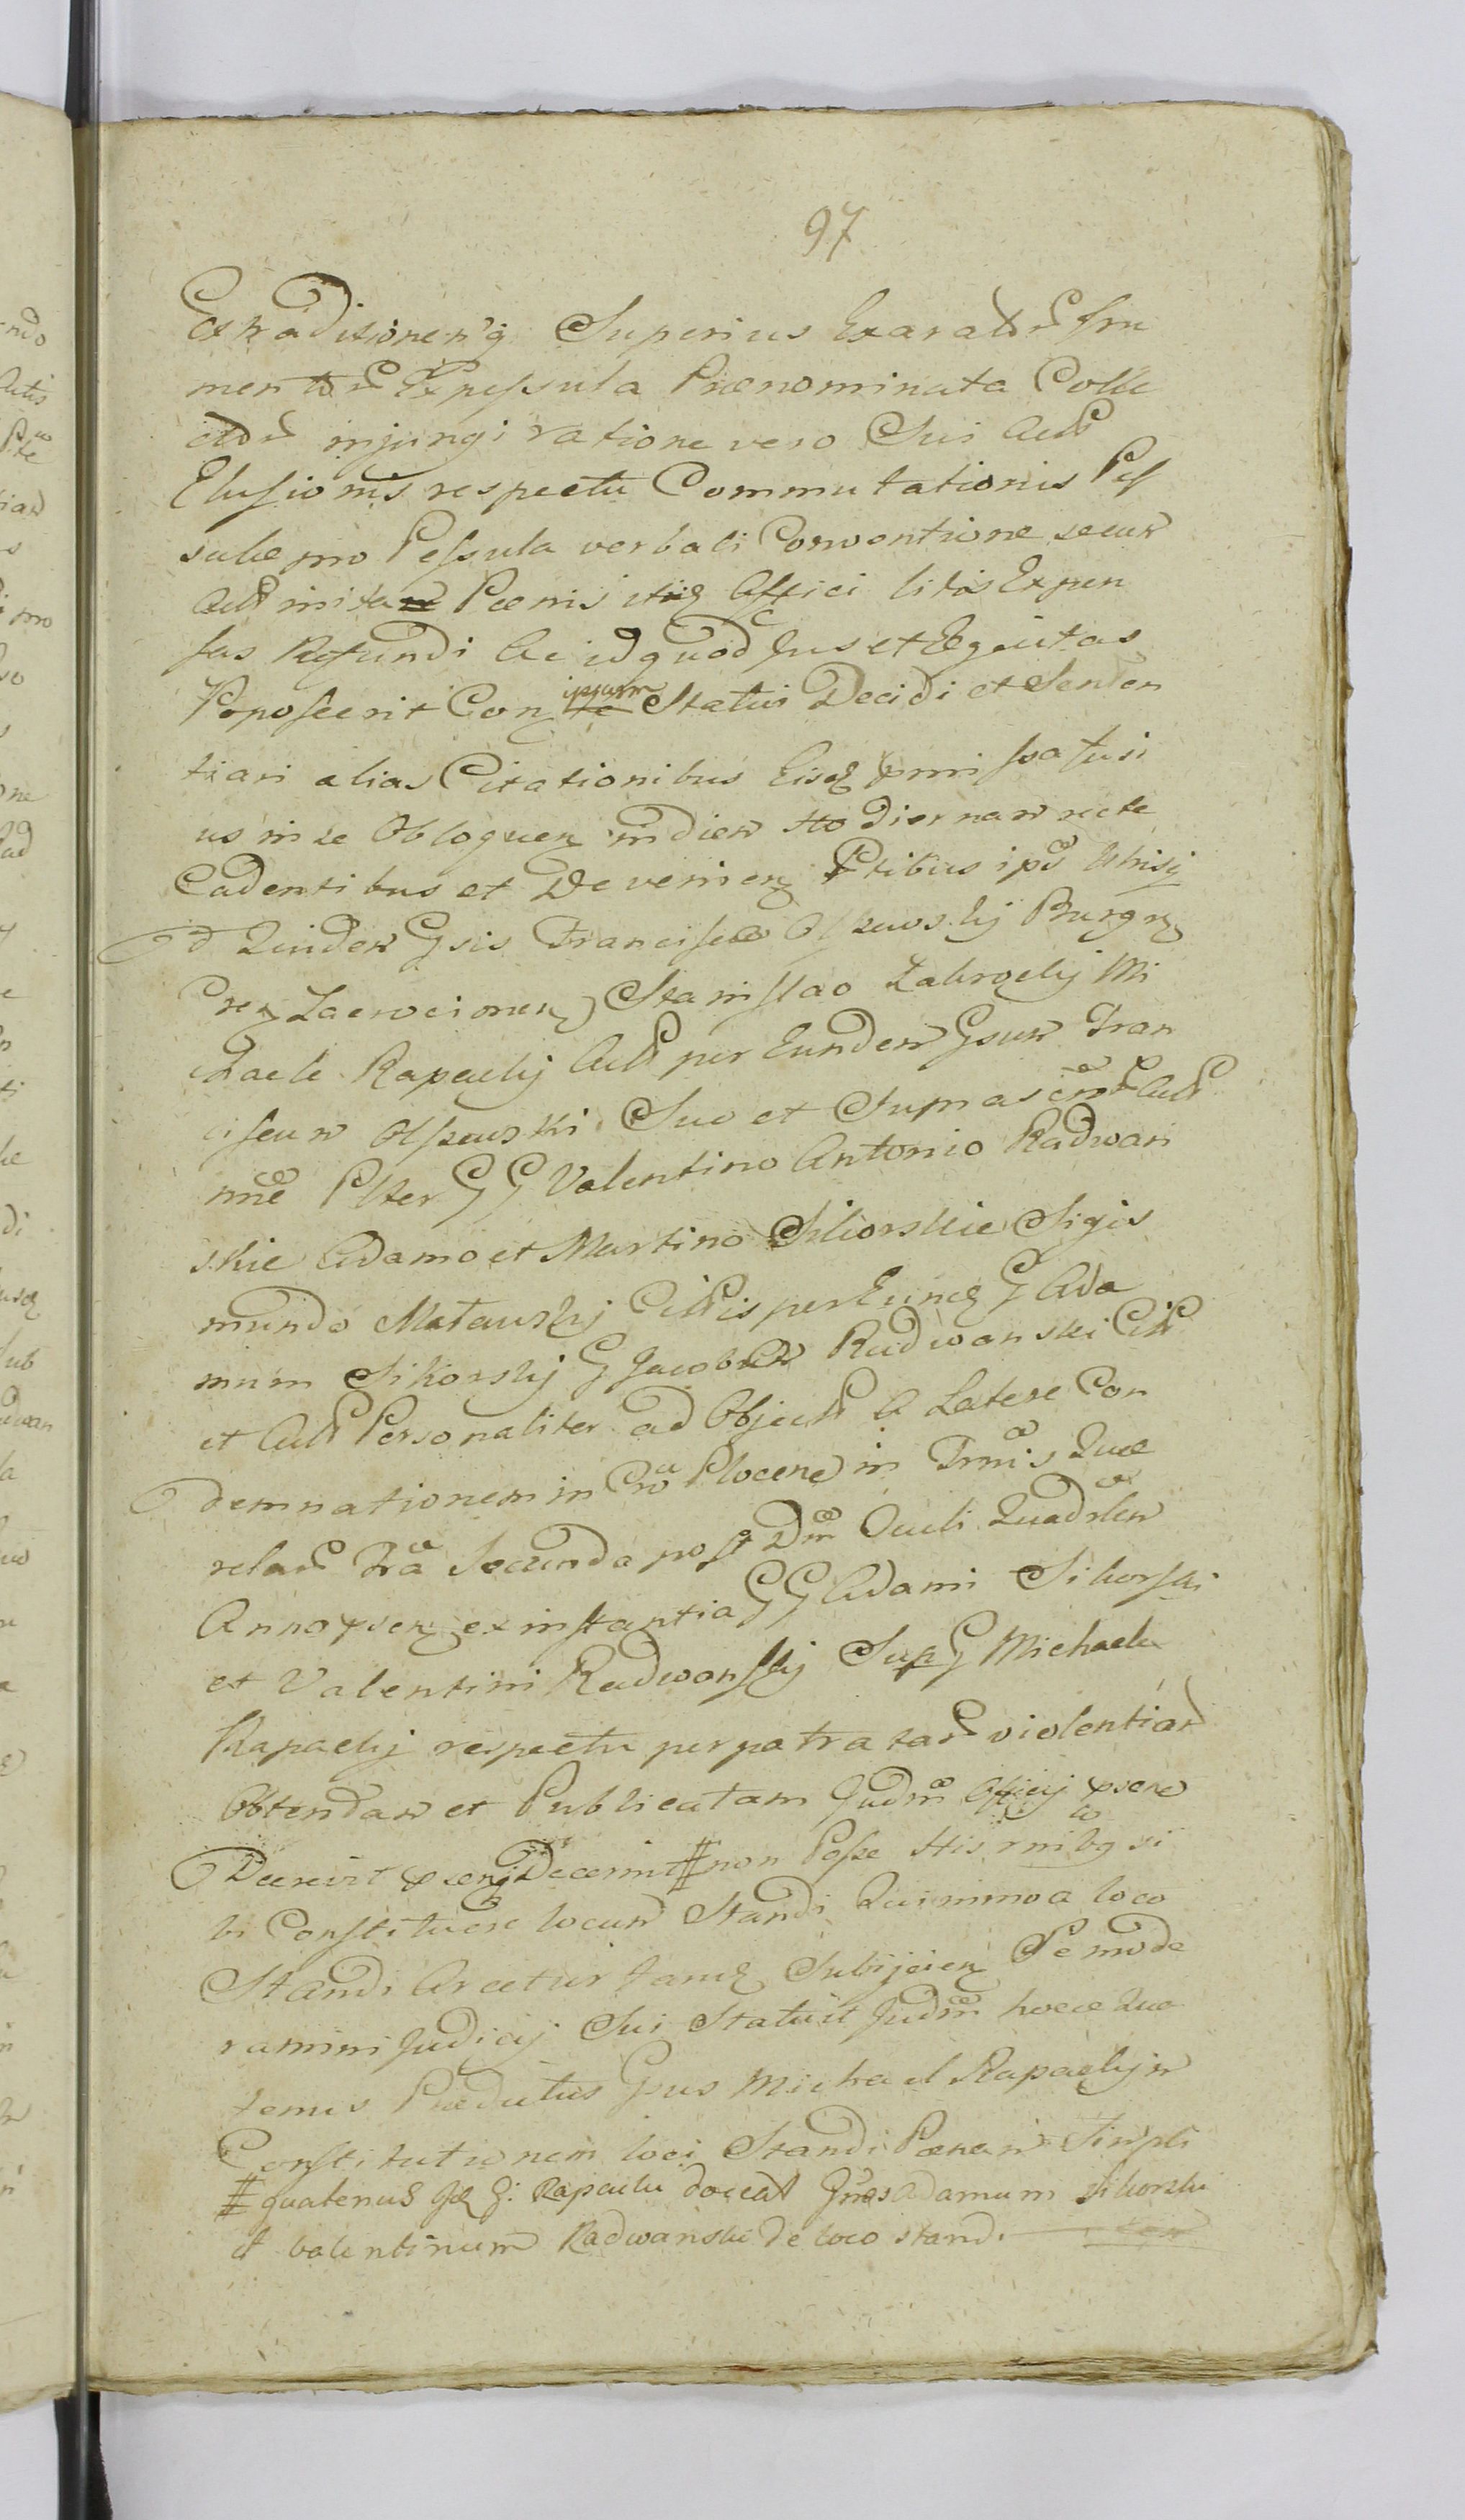 97
Extraditionemq Superius Exarator Fru
mentor Ex pessula Prænominata Colle
ctor injungi ratione vero Sui Act
Elusionis respectu Commutationis Pes
sulæ pro Pessula verbali Conventione secum
Act inita Pœnis Affici litis Expen
sas Refundi Ac id quod Jus et Æquitas
Poposcerit Con ipsum Statui Decidi et Senten
tiari alias Citationibus Eisd
us in se Obloquen in diem Hodiernam recte
Cadentibus et Devenien Ptibus ips
Quidem Gsis Francisco Olszewskj Burgr
Zacrocimen Stanislao Zabrockj Mi
chaele Rapackj Act per Eundem Gsum Fran
ciscum Olszewski Suo et Act
nne Plter G G Valentino Antonio Radwan
skie Adamo et Martino Sikorskie Sigis
mundo Matawskj Cittis per G Ada
mum Sikorskj G Jacobum Radwanski Citt
et Act Personaliter ad Object A Latere Con
demnationem in Plocen in Trmis Que
relar Fra Secunda post Dm Oculi Quadrlem
Anno ex instantia G G Adami Sikorski
et Valentini Radwanskj Sup G Michaele
Rapackj respectu perpatratar violentiar
Obtendam et Publicatam Judm Officij
Decrevit Decernit # non Posse His si
bi Constituere locum Standi Quinimo a loco
Standi Arcetur Subijcien Se mode
ramini Judicij Sui Statuit Judm hocce Qua
tenus Prædictus Gsus Michael Rapackj
Constitutionem loci Standi Pœnam Simpli
# quatenus G: Rapacki doceat Gnos Adamum Sikorski
et Valentinum Radwanski de loco stand.